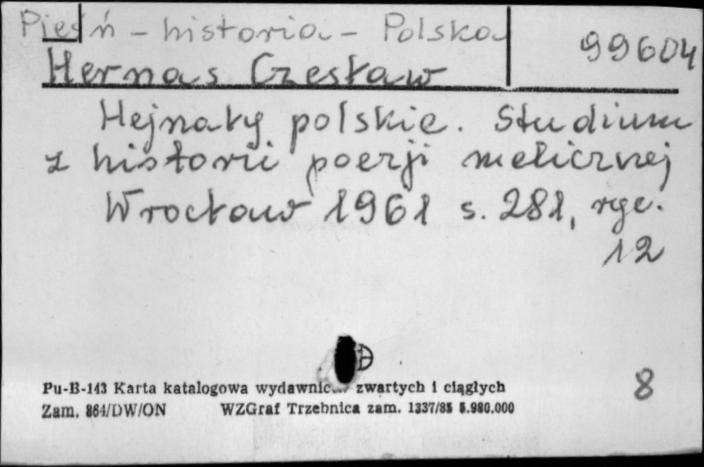 Pieśń - historia - Polska
99604
Hernas Czesław
Hejnały polskie. Studium
z historii poezji melicznej
Wrocław 1961 s. 281, ryc.
12
Pu-B-143 Karta katalogowa zwartych i ciągłych
8
Zam. 864/DW/ON WZGraf Trzebnica zam. 1337/85 5.980.000